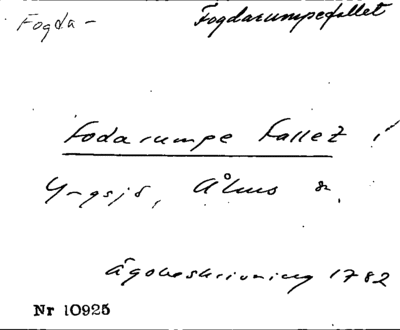 Fogda- Fogdarumpefallet
Fodarumpe Fallet i
Yngsjö, Åhus sn.
Ägobeskrivning 1782
Nr 10925